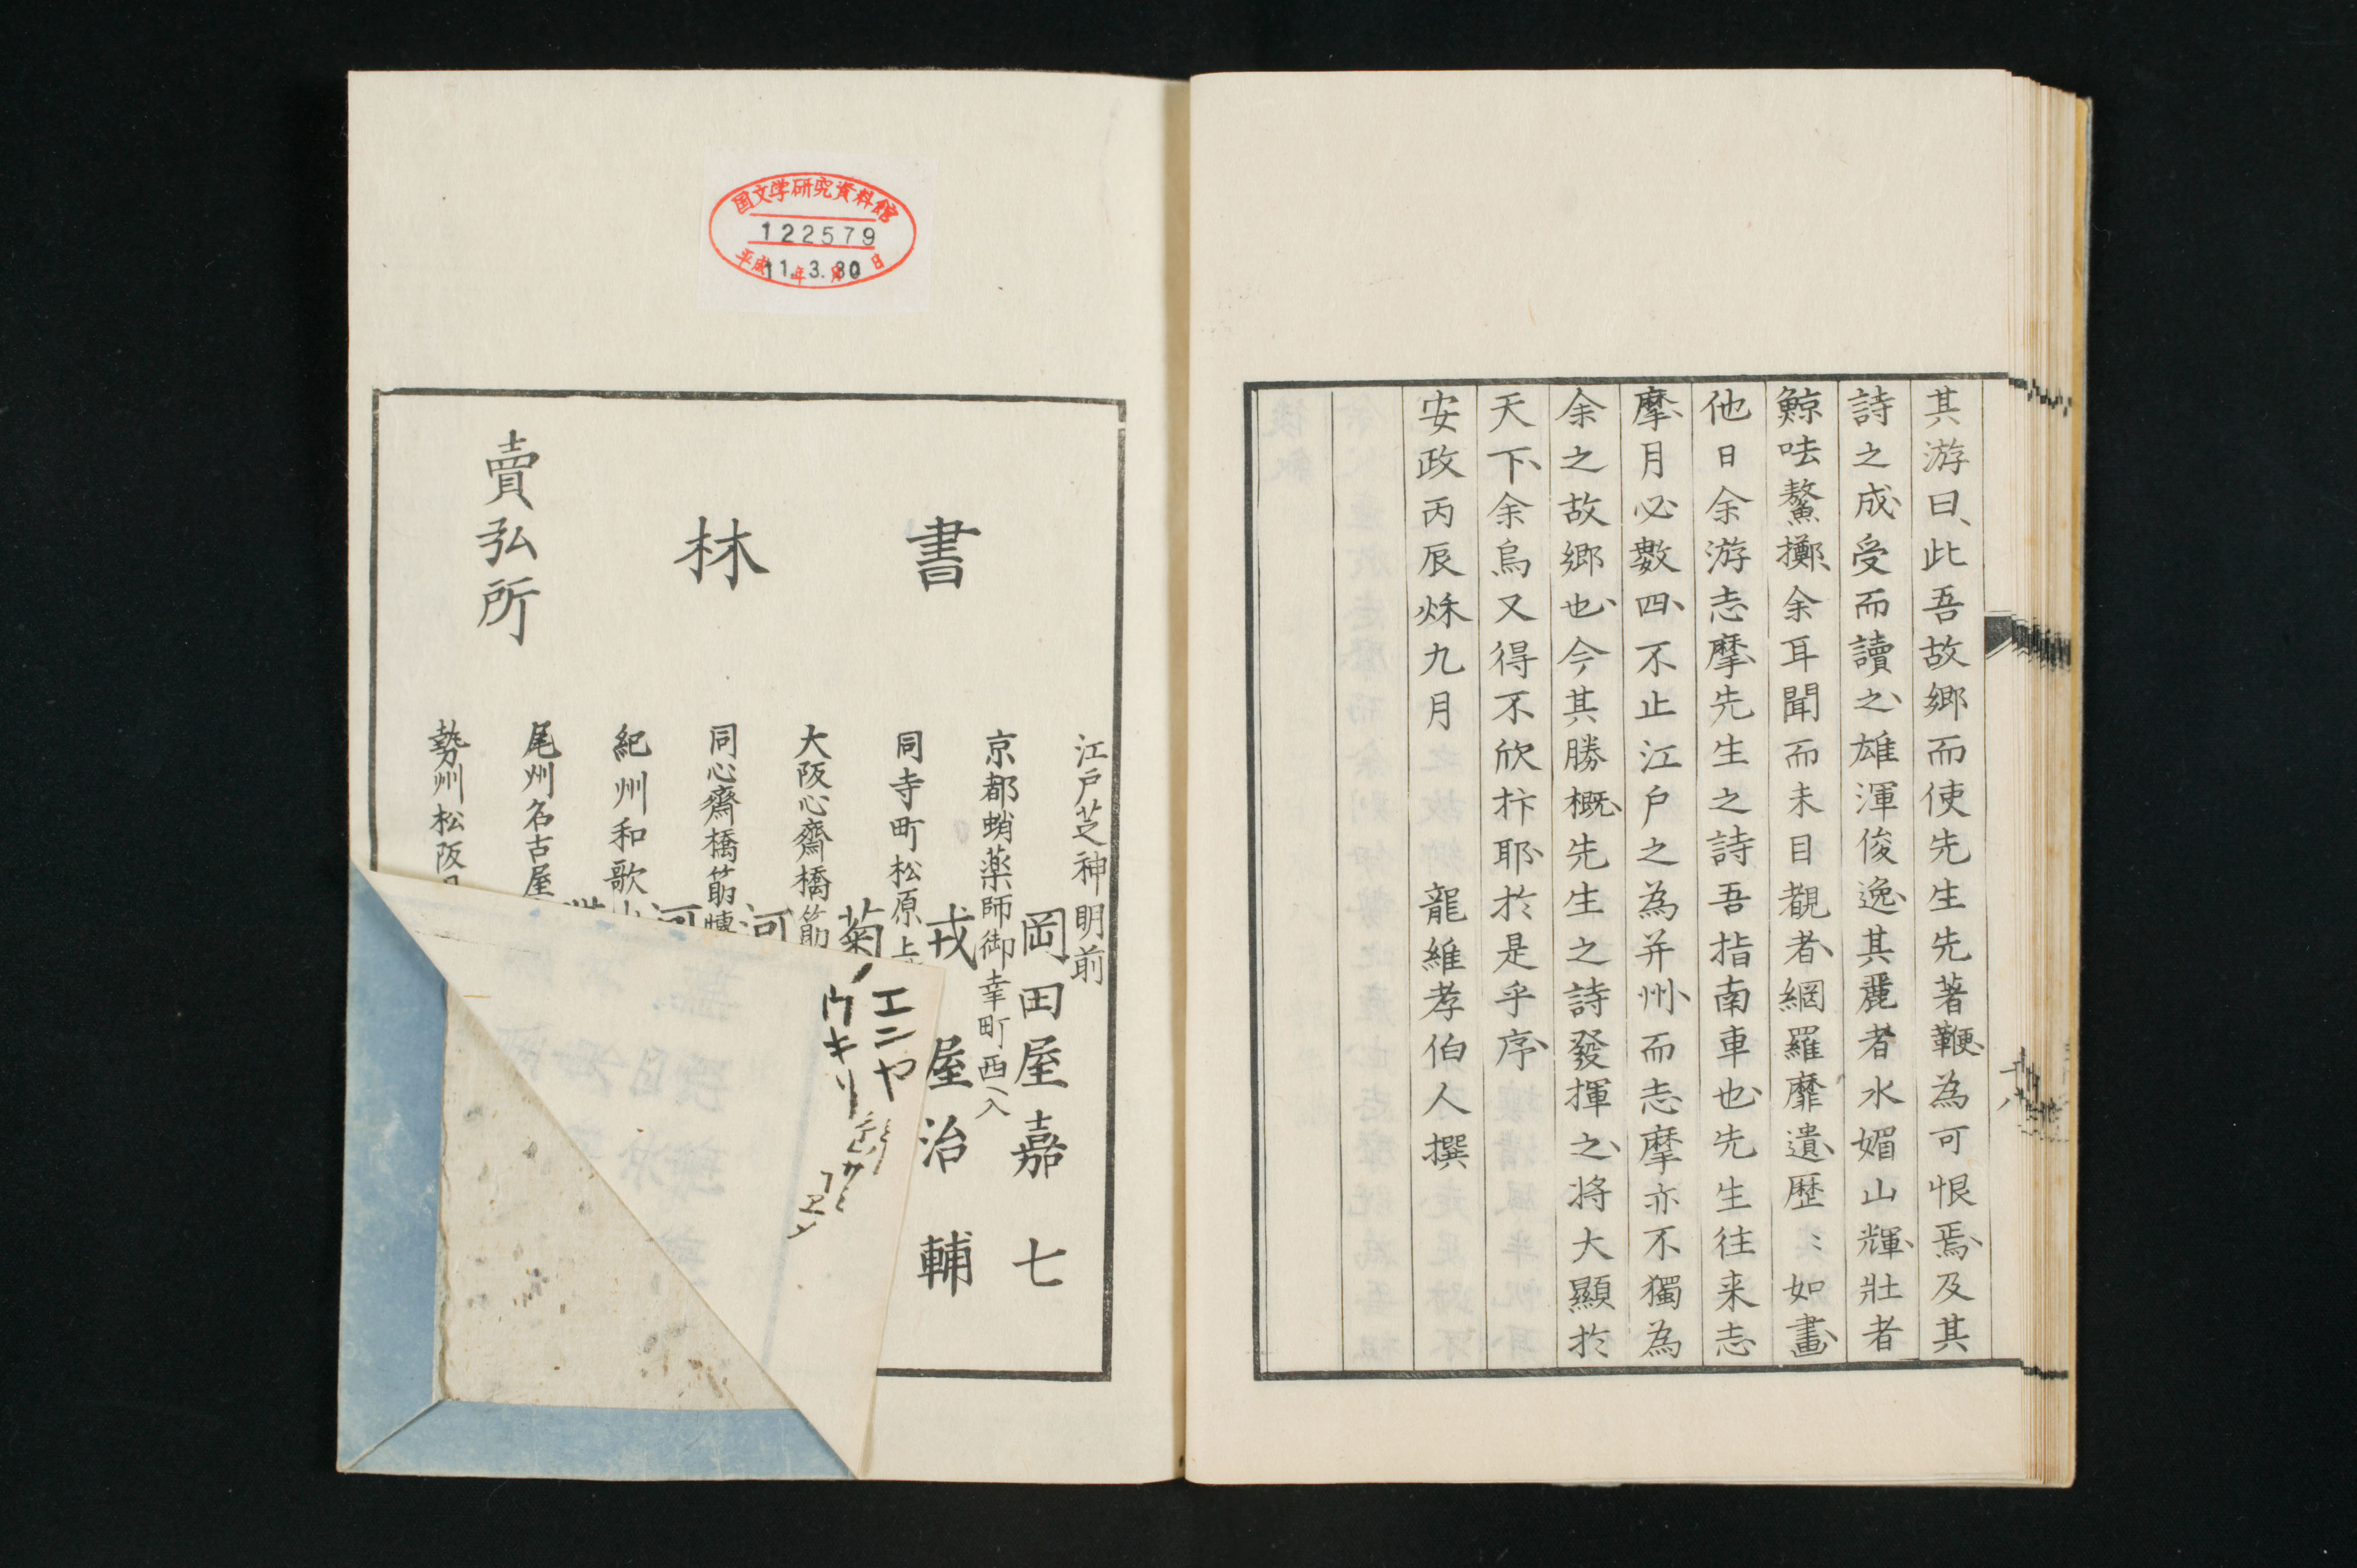 其游曰、此吾故郷而使先生先著鞭為可恨焉、及其
詩之成、受而讀之、雄渾俊逸、其麗者水媚山輝、壯者
鯨呿鰲擲、余耳聞而未目覩者、網羅靡遺、歴〻如畫、
他日余游志摩、先生之詩吾指南車也、先生往来志
摩、月必數四、不止江戸之為并州、而志摩亦不獨為
余之故郷也、今其勝概、先生之詩發揮之、将大顯於
天下、余烏又得不欣抃耶、於是乎序、
安政丙辰烁九月 龍維孝伯人撰
国文学研究資料館
122579
平成11年3月30日
書林
賣弘所
江戸芝神明前
岡田屋嘉七
京都蛸薬師御幸町西へ入
戎屋治輔
同寺町松原上
菊
大阪心齋橋筋
河
同心齋橋筋
河
紀州和歌
尾州名古屋
勢州松阪
エニヤ
ウキリ